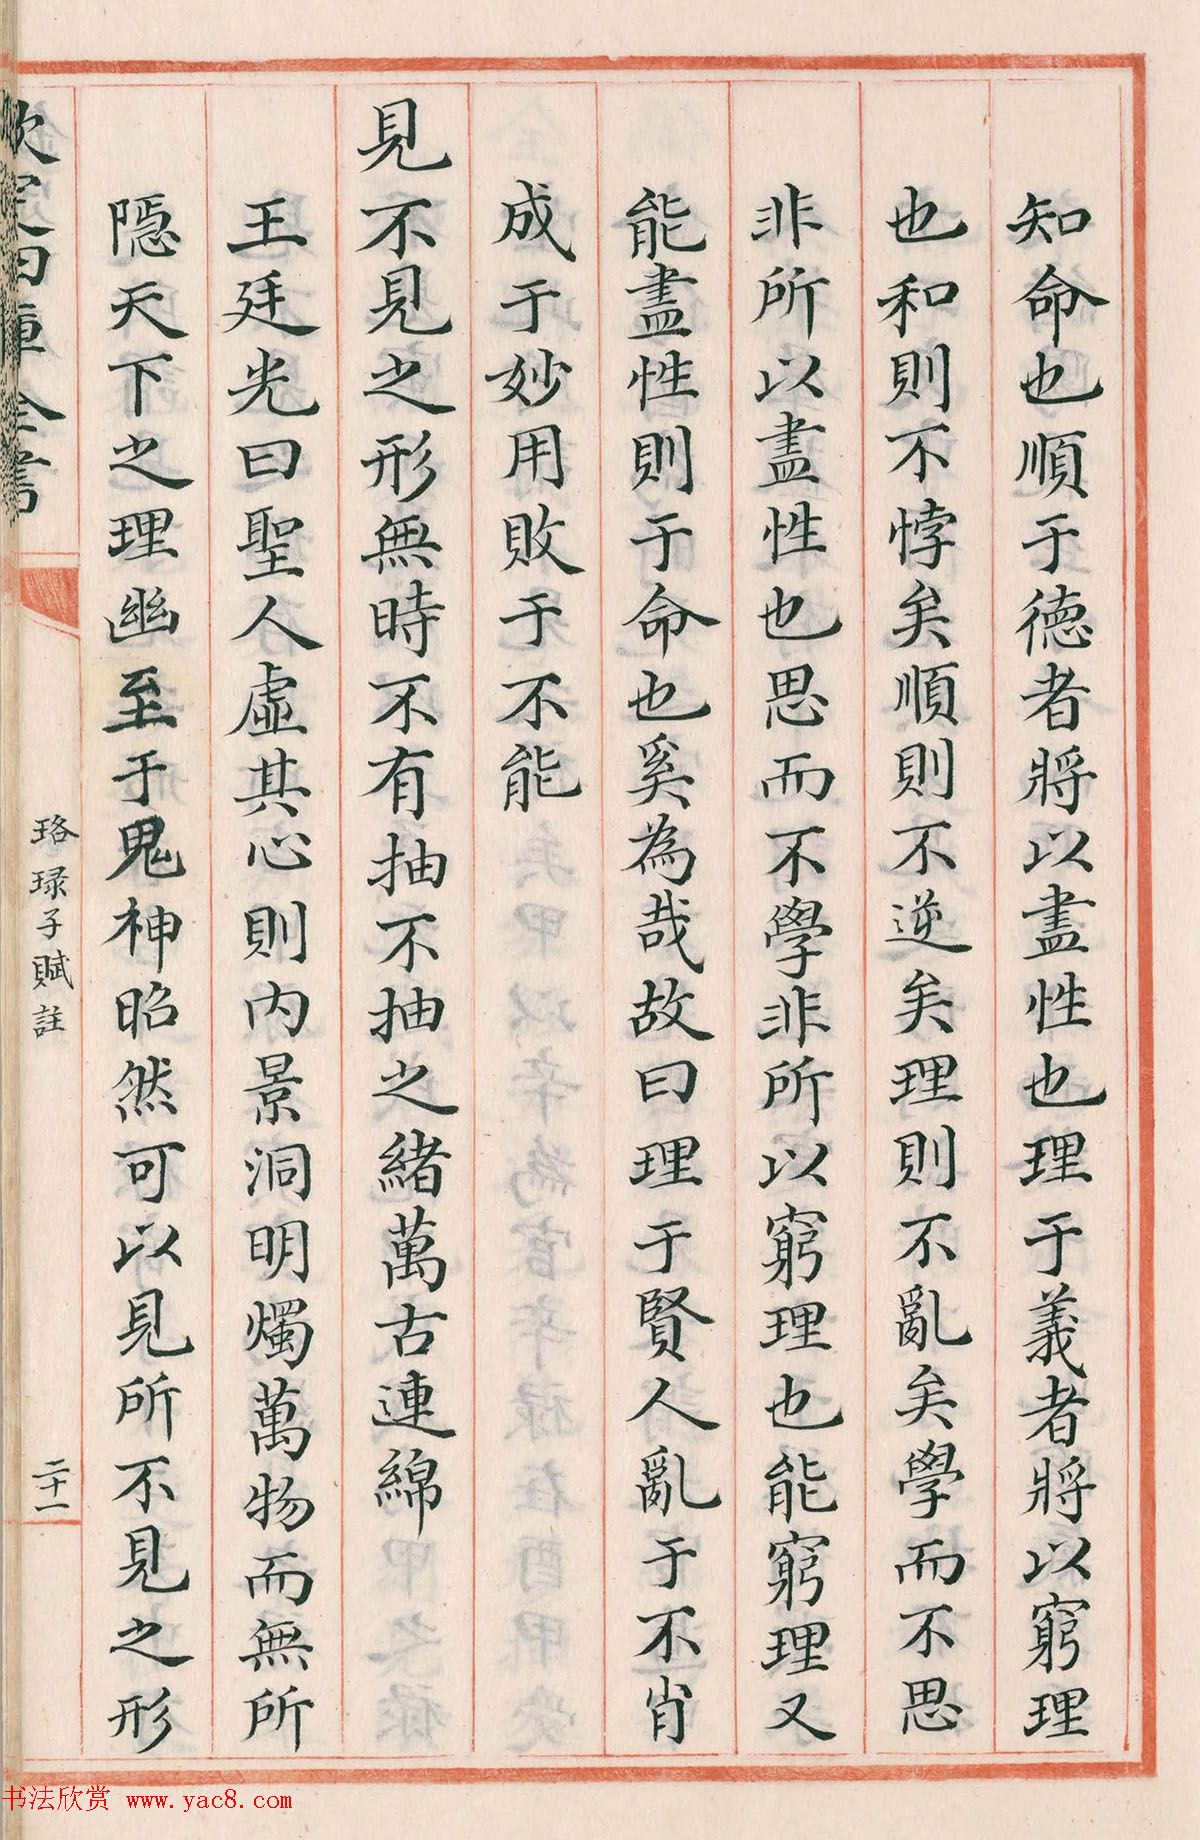 知命也順于德者將以盡性也理于義者將以窮理
也和則不悖矣順則不逆矣理則不亂矣學而不思
非所以盡性也思而不學非所以窮理也能窮理又
能盡性則于命也奚為哉故曰理于賢人亂于不肖
成于妙用敗于不能
見不見之形無時不有抽不抽之緒萬古連綿
王廷光曰聖人虛其心則内景洞明燭萬物而無所
隱天下之理幽至于鬼神昭然可以見所不見之形
欽定四庫全書
珞琭子賦註
二十一
书法欣赏 www.yac8.com